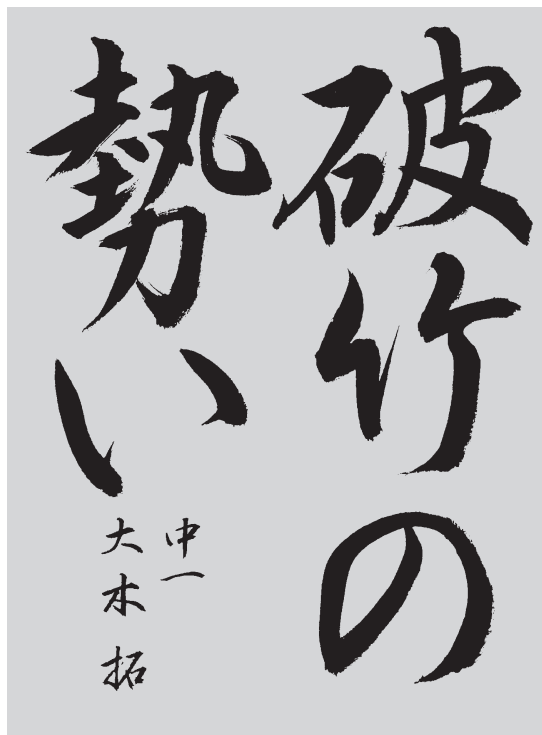 破竹の
勢い
中一
大木拓